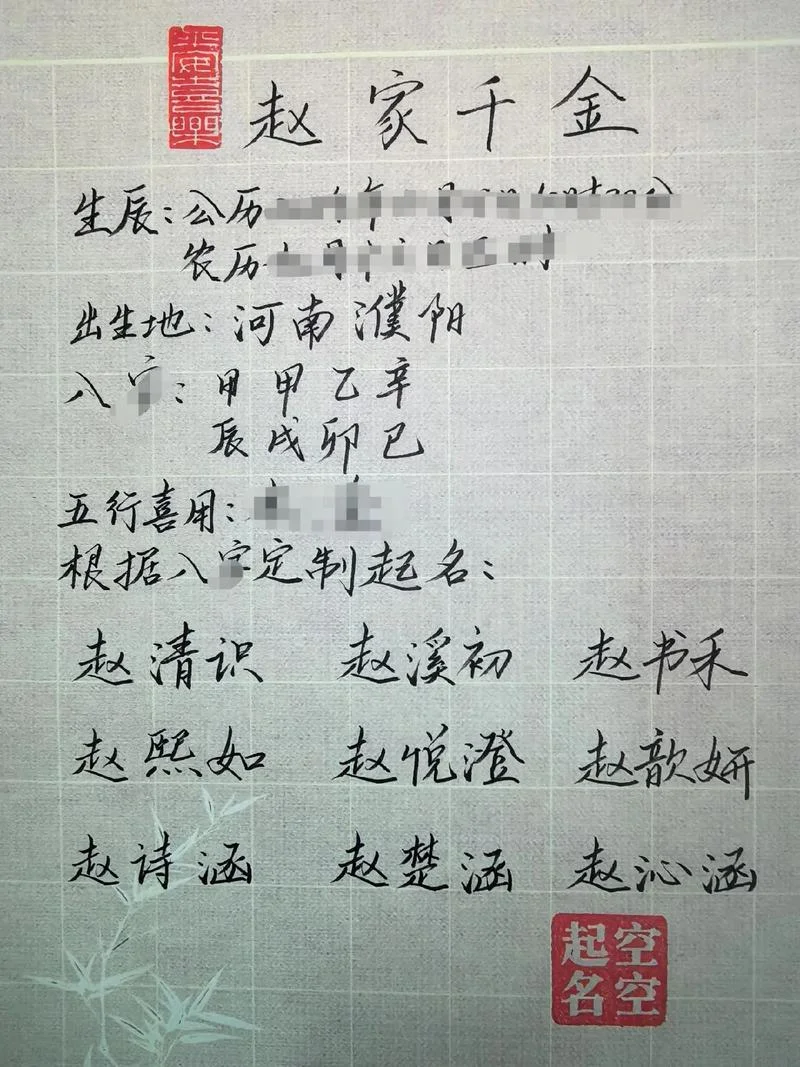 平安喜樂
赵家千金
生辰：公历
农历
出生地：河南濮阳
八字：甲甲乙辛
辰戌卯巳
五行喜用：
根据八字定制起名：
赵清识 赵溪初 赵书禾
赵熙如 赵悦澄 赵歆妍
赵诗涵 赵楚涵 赵沁涵
空空起名